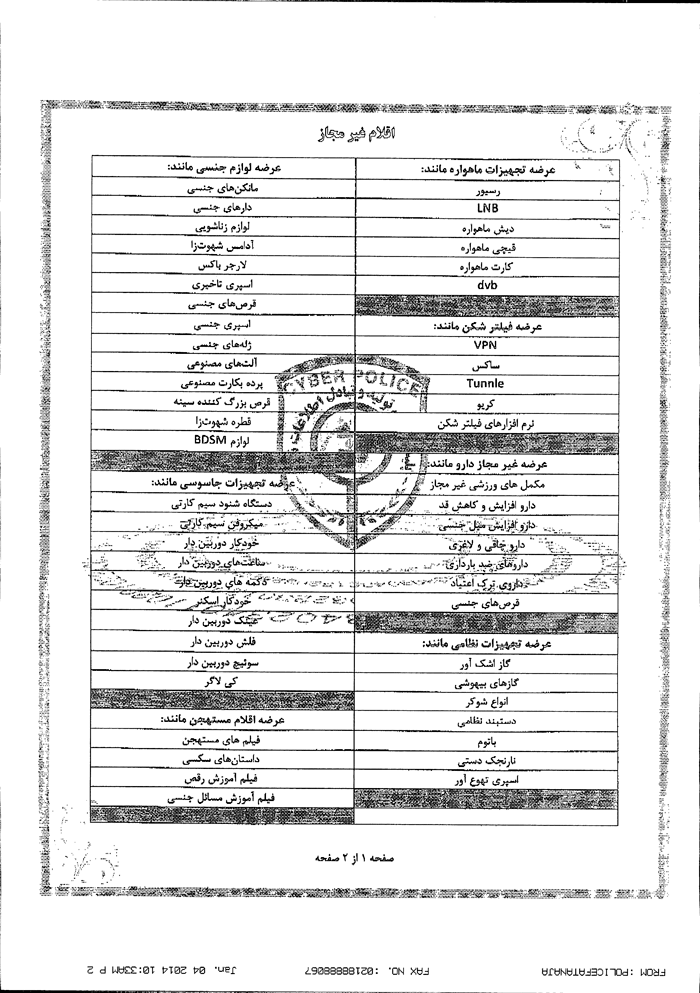 اقلام غیر مجاز
عرضه تجهیزات ماهواره مانند:
رسیور
LNB
دیش ماهواره
قیچی ماهواره
کارت ماهواره
dvb
عرضه فیلتر شکن مانند:
VPN
ساکس
Tunnle
کریو
نرم افزارهای فیلتر شکن
عرضه غیر مجاز دارو مانند:
مکمل های ورزشی غیر مجاز
دارو افزایش و کاهش قد
دارو افزایش میل جنسی
دارو چاقی و لاغری
داروهای ضد بارداری
داروی ترک اعتیاد
قرص‌های جنسی
عرضه تجهیزات نظامی مانند:
گاز اشک آور
گازهای بیهوشی
انواع شوکر
دستبند نظامی
باتوم
نارنجک دستی
اسپری تهوع آور
عرضه لوازم جنسی مانند:
مانکن‌های جنسی
دارهای جنسی
لوازم زناشویی
آدامس شهوت‌زا
لارجر باکس
اسپری تاخیری
قرص‌های جنسی
اسپری جنسی
ژله‌های جنسی
آلت‌های مصنوعی
پرده بکارت مصنوعی
قرص بزرگ کننده سینه
قطره شهوت‌زا
لوازم BDSM
عرضه تجهیزات جاسوسی مانند:
دستگاه شنود سیم کارتی
میکروفن سیم کارتی
خودکار دوربین دار
ساعت‌های دوربین دار
دکمه های دوربین دار
خودکار اسکنر
عینک دوربین دار
فلش دوربین دار
سوئیچ دوربین دار
کی لاگر
عرضه اقلام مستهجن مانند:
فیلم های مستهجن
داستان‌های سکسی
فیلم آموزش رقص
فیلم آموزش مسائل جنسی
CYBER POLICE
تولید و تبادل اطلاعات
صفحه ۱ از ۲ صفحه
FROM :POLICEFATANAJA FAX NO. :02188888067 Jan. 04 2014 10:33AM P 2